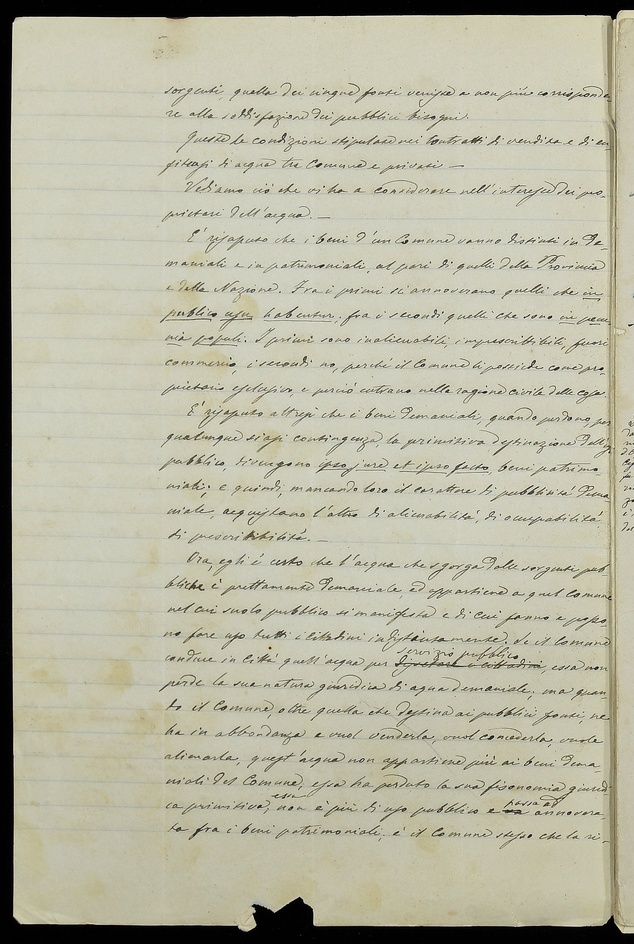 sorgenti, quella dei cinque fonti venisse a non più corrisponde-
re alla soddisfazione dei pubblici bisogni.
Queste le condizioni stipulate nei Contratti di vendita e di en-
fiteusi di acqua tra Comune e privati —
Vediamo ciò che vi ha a considerare nell'interesse dei pro-
prietari dell'acqua. —
E' risaputo che i beni d'un Comune vanno distinti in De-
maniali e in patrimoniali, al pari di quelli della Provincia
e della Nazione. Fra i primi si annoverano quelli che in
publico usu habentur; fra i secondi quelli che sono in pecu-
nia populi. I primi sono inalienabili, imprescrittibili, fuori
commercio, i secondi no, perché il Comune li possiede come pro-
prietario esclusivo, e perciò entrano nella ragione civile delle cose.
E' risaputo altresì che i beni demaniali, quando perdono, per
qualunque siasi contingenza la primitiva destinazione dell'uso
pubblico, divengono ipso jure et ipso facto, beni patrimo-
niali; e quindi, mancando loro il carattere di pubblicità dema-
niale, acquistano l'altro di alienabilità, di occupabilità
di prescrittibilità. —
Ora, egli è certo che l'acqua che sgorga dalle sorgenti pub-
bliche è prettamente demaniale, ed appartiene a quel Comune
nel cui suolo pubblico si manifesta e di cui fanno e posso-
no fare uso tutti i cittadini indistintamente. Se il Comune
servizio pubblico
conduce in Città quell'acqua per dissetare i cittadini, essa non
perde la sua natura giuridica di acqua demaniale; ma quan-
to il Comune, oltre quella che destina ai pubblici fonti, ne
ha in abbondanza e vuol venderla, vuol concederla, vuole
alienarla, quest'acqua non appartiene più ai beni dema-
niali del Comune, essa ha perduto la sua fisonomia giuridi-
ca primitiva, essa non è più di uso pubblico e va passa ad annovera-
ta fra i beni patrimoniali; è il Comune stesso che la ri-